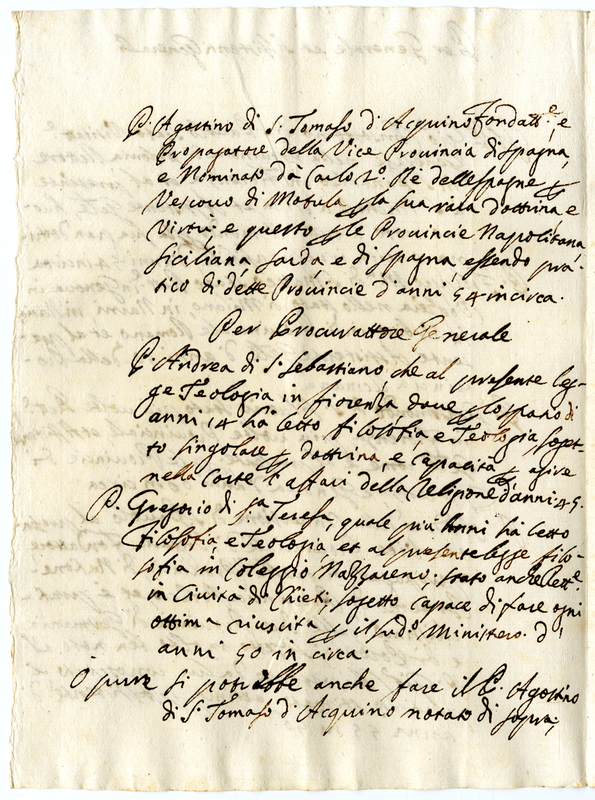 P. Agostino di S. Tomaso d'Acquino fondatt.e e
Propagatore della Vice Provincia di Spagna,
e Nominato da Carlo 2.o Rè delle Spagne
Vescovo di Motula la sua rara dottrina e
virtù; e questo le Provincie Napolitana
Siciliana, Sarda, e di Spagna, essendo pra-
tico di dette Provincie d'anni 54 in circa.
Per Procurattore Generale
P. Andrea di S. Sebastiano, che al presente leg-
ge Teologia in fiorenza dove lo spatio di
anni 14 hà letto filosofia e Teologia, sogget-
to singolare dottrina, e capacità agire
nella Corte l'affari della Religione d'anni 45.
P. Gregorio di S.ta Teresa, quale più Anni hà letto
filosofia, e Teologia et al presente legge filo-
sofia in Coleggio Nazzareno; stato anche lett.e
in Cività di Chieti; sogetto capace di fare ogni
ottima riuscita il sud.o Ministero. d'
anni 50 in circa.
O pure si potrebbe anche fare il P. Agostino
di S. Tomaso d'Acquino notato di sopra;